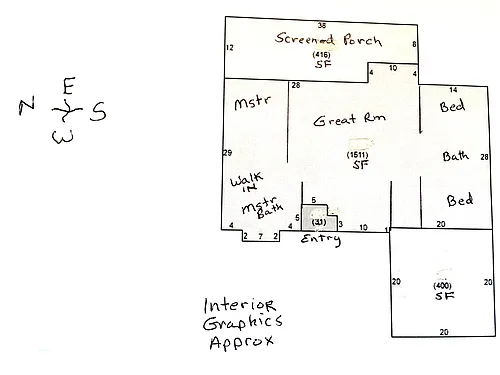 38
Screened Porch
12
8
(416)
SF
4
10
4
28
14
Mstr
Great Rm
Bed
(1511)
SF
Bath
28
29
WALK
IN
Mstr
Bath
Bed
5
5
(31)
3
4
2
7
2
4
10
20
Entry
N
E
S
W
20
(400)
SF
20
20
Interior
Graphics
Approx